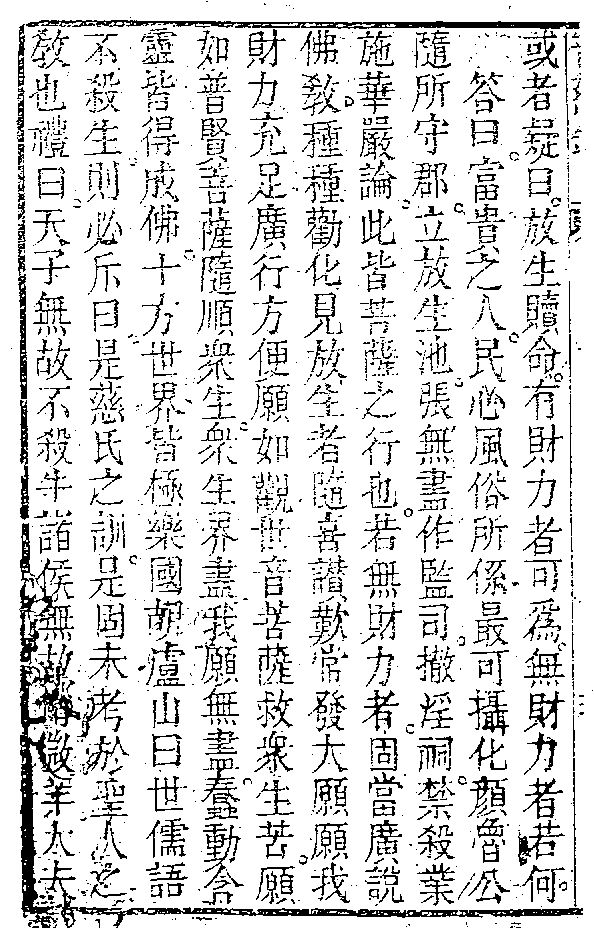 或者疑曰。放生贖命。有財力者可爲。無財力者若何。
答曰。富貴之人。民必風俗所係。最可攝化。顏魯公
隨所守郡。立放生池。張無盡作監司。撤淫祠。禁殺業
施華嚴論。此皆菩薩之行也。若無財力者。固當廣說
佛敎。種種勸化。見放生者。隨喜讚歎。常發大願。願我
財力充足。廣行方便。願如觀世音菩薩。救衆生苦。願
如普賢菩薩。隨順衆生。衆生界盡。我願無盡。蠢動含
靈。皆得成佛。十方世界。皆極樂國。胡廬山曰。世儒語
不殺生。則必斥曰。是慈氏之訓。是固未考於聖人之
敎也。禮曰。天子無故不殺牛。諸侯無故不殺羊。大夫